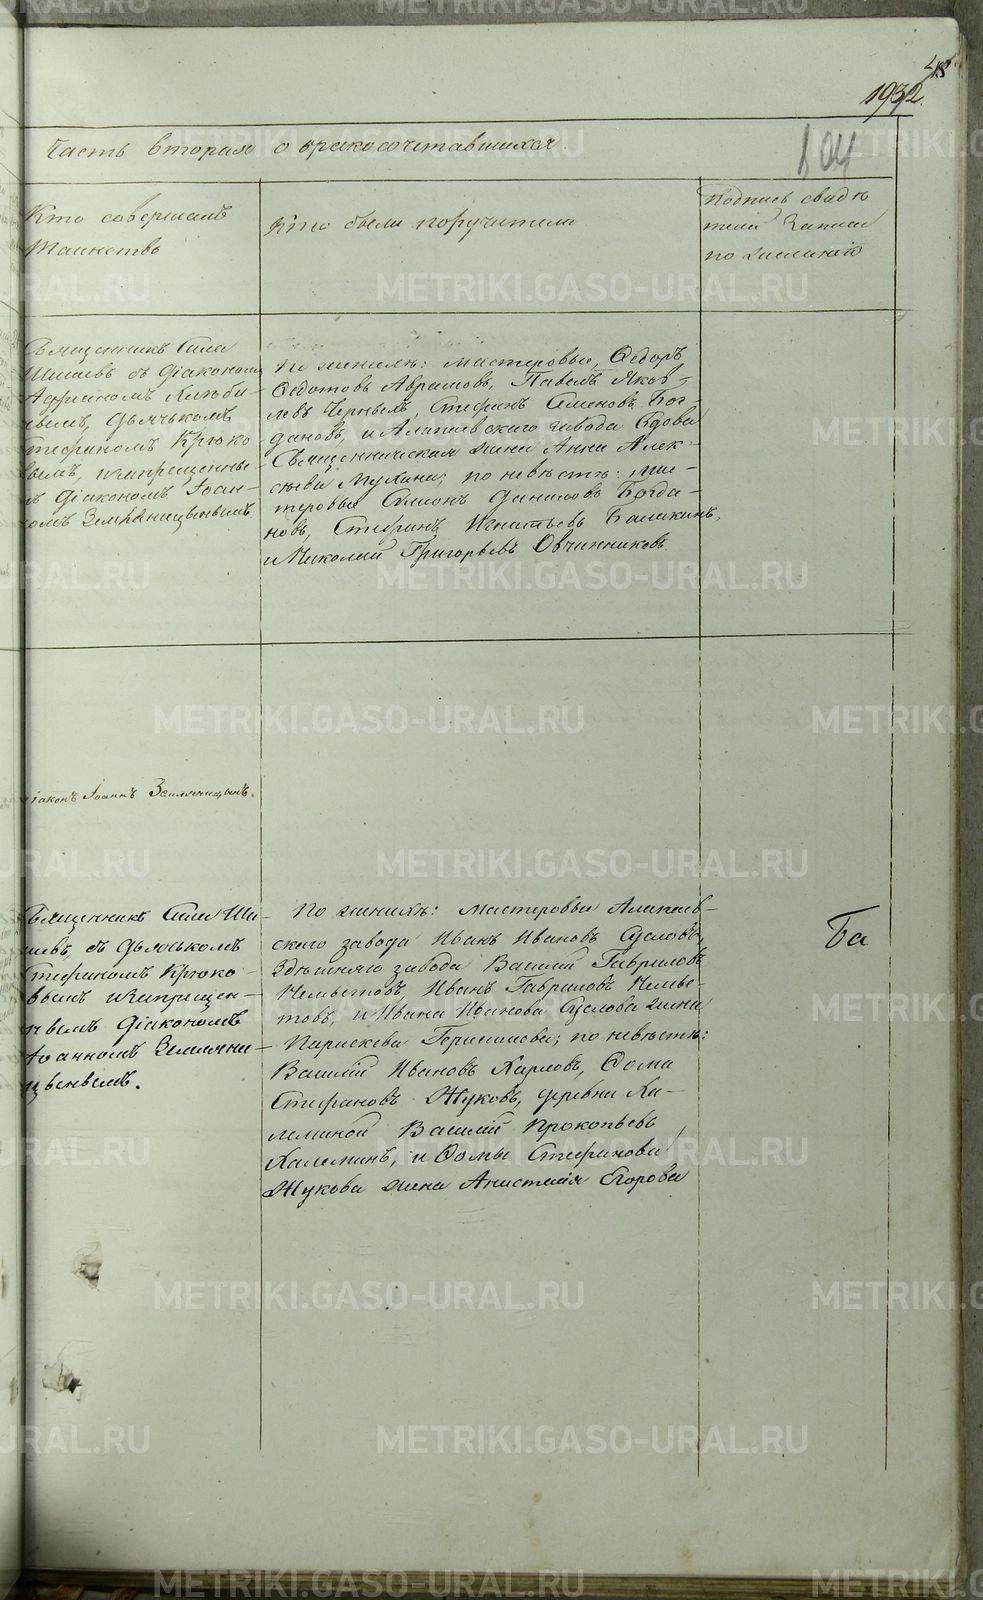 48
1932.
104
Часть вторая о бракосочетавшихся.
Кто совершалъ
Таинство
Кто были поручители
Подпись свидѣ
телей записи
по желанію
Священникъ Сила
Шишевъ съ Діакономъ
Стефаномъ Крюко
вымъ,
Діакономъ Іоан-
номъ Земляницынымъ
По женихѣ: мастеровые, Ѳедоръ
Ѳедотовъ Аврамовъ, Павелъ Яков-
левъ Черныхъ, Стефанъ Семеновъ Бог-
дановъ, и Алапаевскаго завода вдова
Священническая жена Анна Алек-
сѣева Мухина; по невѣстѣ: мас-
теровые Симонъ Даниловъ Богда-
новъ, Стефанъ Игнатьевъ Балакинъ,
и Николай Григорьевъ Овчинниковъ
Діаконъ Іоаннъ Земляницынъ.
Священникъ Сила Ши-
шевъ, съ дьячькомъ
Стефаномъ Крюко-
вымъ и запрещен-
нымъ Діакономъ
Іоанномъ Земляни-
цынымъ.
По женихѣ: мастеровые Алапаев-
скаго завода Иванъ Ивановъ Сусловъ,
здѣшняго завода Василій Гавриловъ
Чемезовъ, Иванъ Гавриловъ
и Ивана Иванова Суслова жена
Параскева Герасимова; по невѣстѣ:
Василій Ивановъ Карповъ, Ѳома
Стефановъ Жуковъ, деревни Ка-
леминой Василій Прокопьевъ
Калеминъ, и Ѳомы Стефанова
Жукова жена Анастасія Егорова
Ба
METRIKI.GASO-URAL.RU